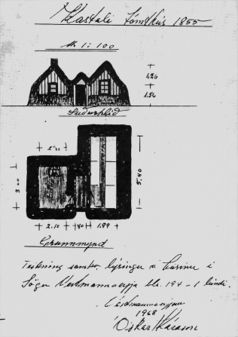 Kastali Tómthús 1855
M. 1 : 100
1,26
1,50
Suðurhlið
3.00
5,40
2.10 1.84
Grunnmynd
Teikning samkv. lýsingu á bænum í
Sögu Vestmannaeyja bls. 194 - I bindi.
Vestmannaeyjum
1968
Óskar Kárason